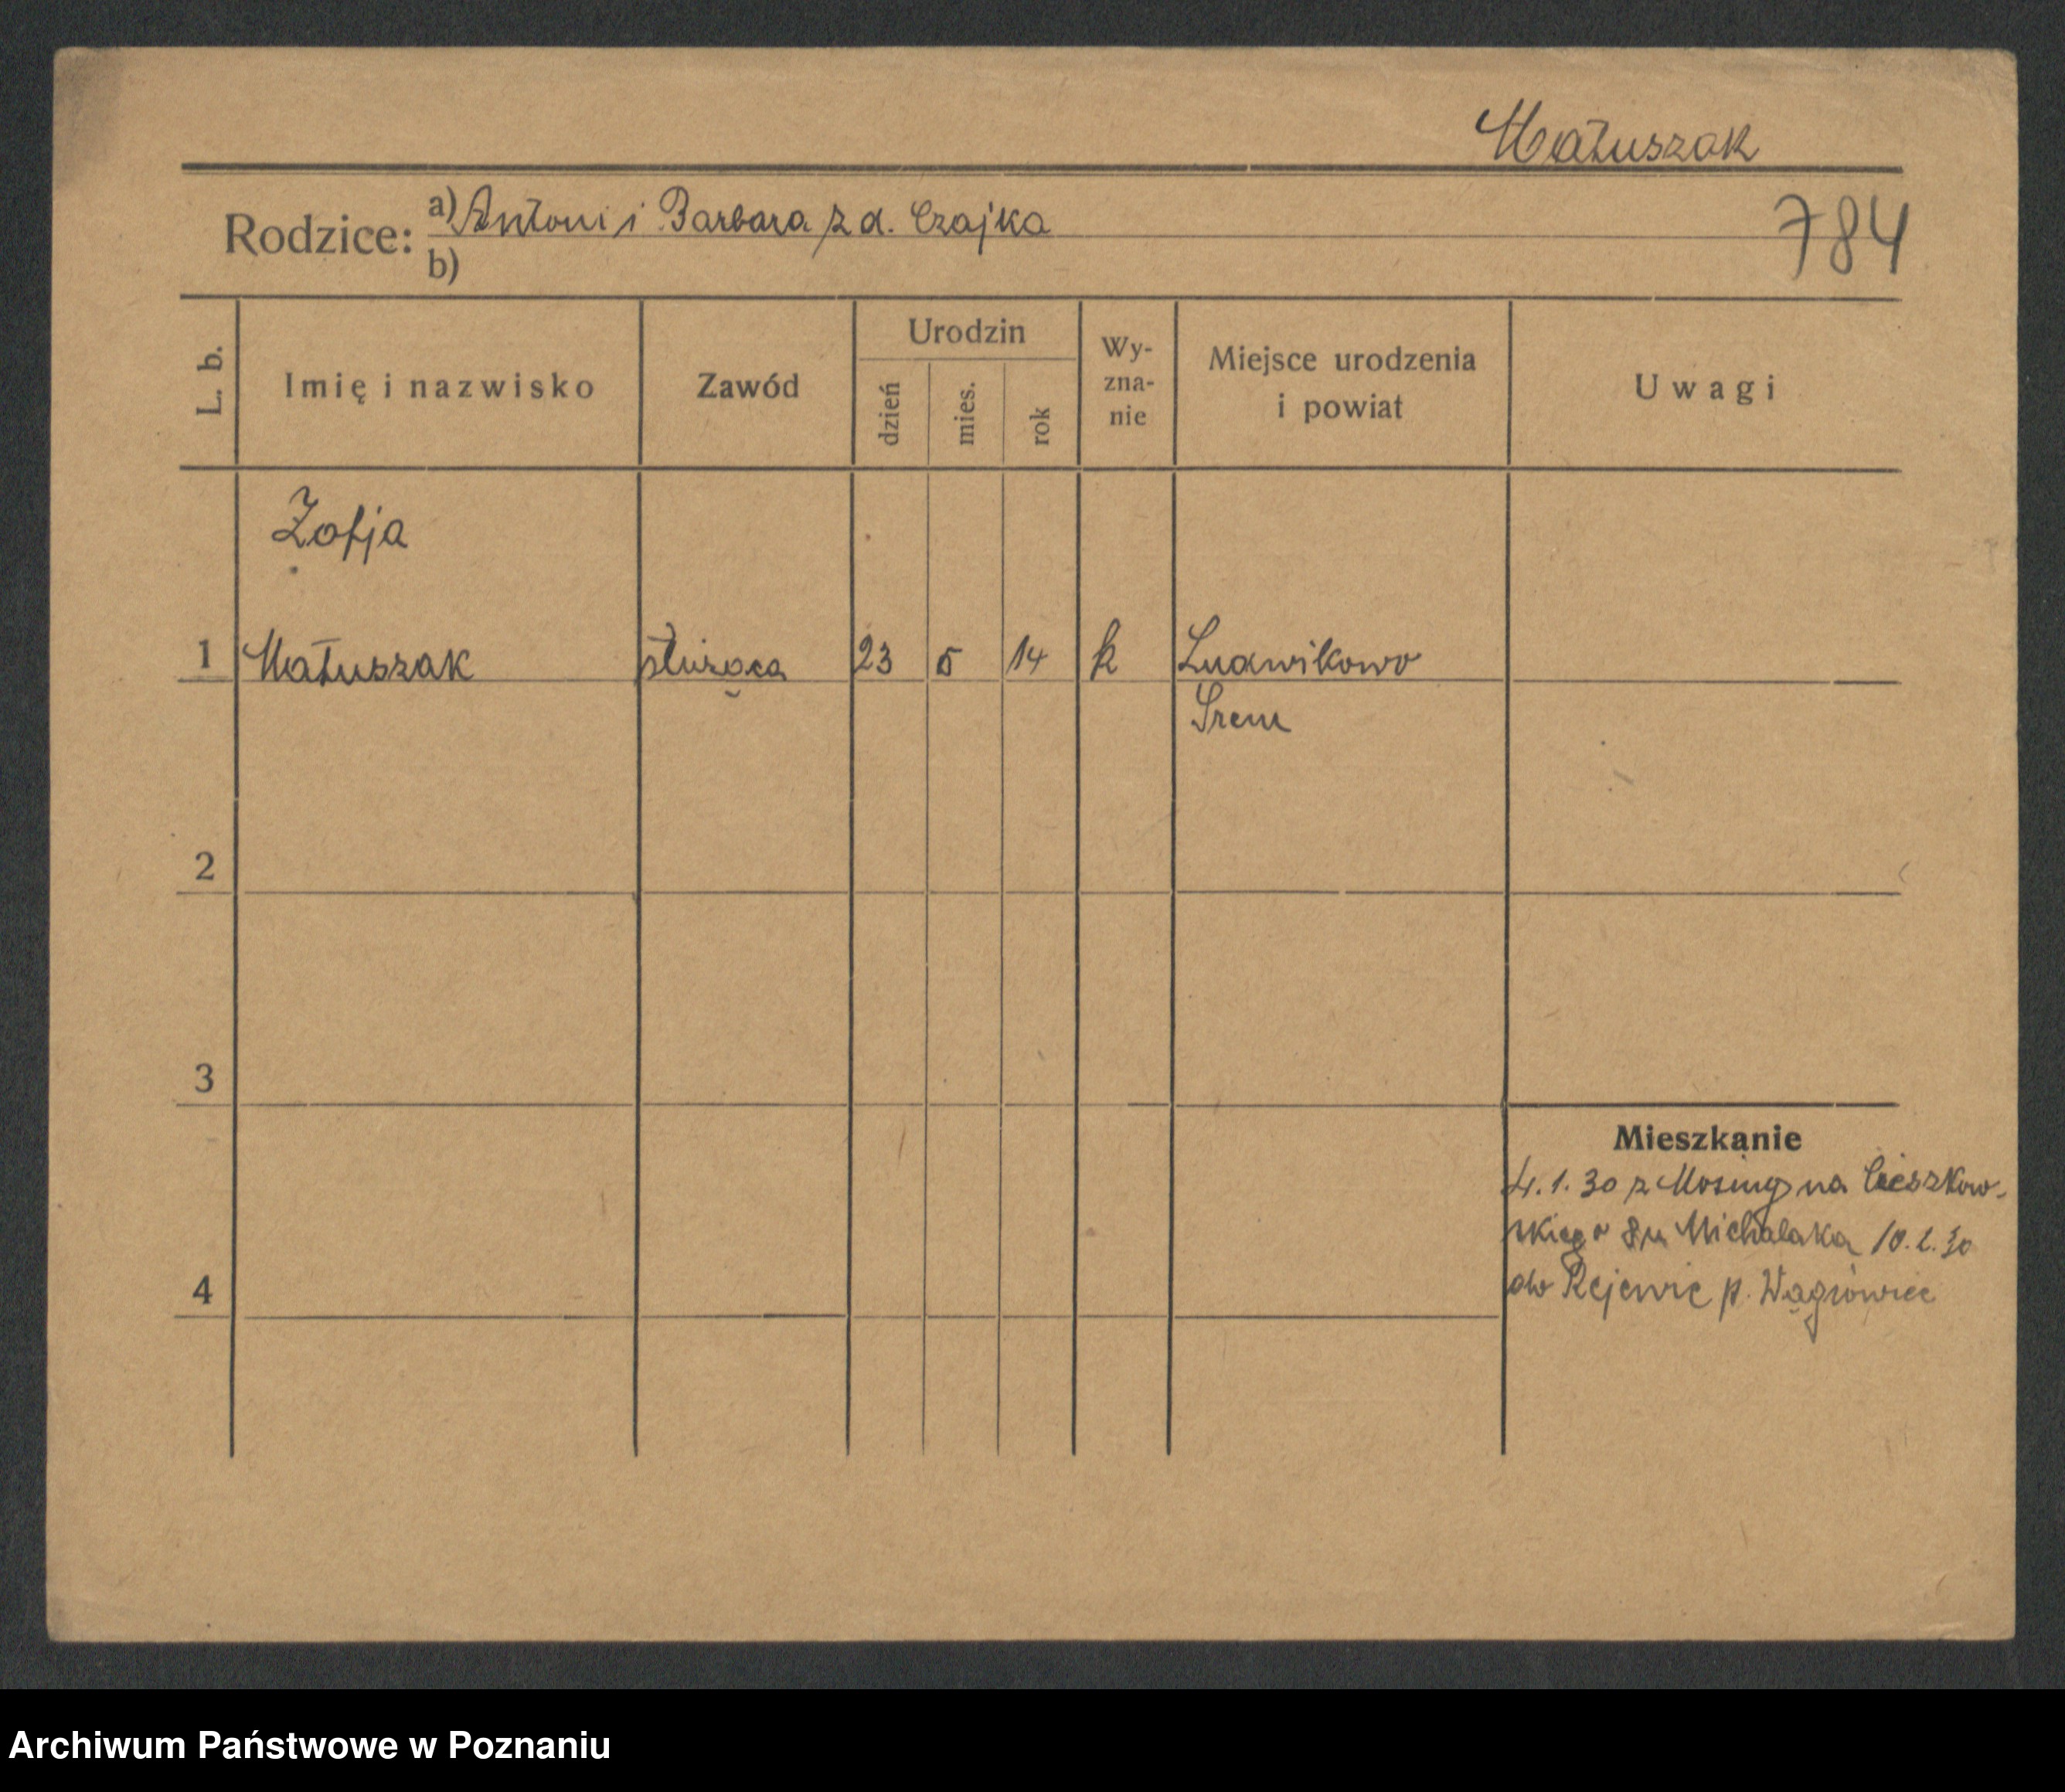 Matuszak
784
Rodzice: a) Antoni i Barbara z d. Czajka
b)
L. b. Imię i nazwisko Zawód Urodzin dzień mies. rok Wy-zna-nie Miejsce urodzenia i powiat Uwagi
Zofja
1 Matuszak służąca 23 5 14 k Ludwikowo
Śrem
2
3
Mieszkanie
4.1.30 z Mosiny na Cieszkow-
skiego 8 u Michalaka 10.2.30
4 do p. Wągrówiec
Archiwum Państwowe w Poznaniu